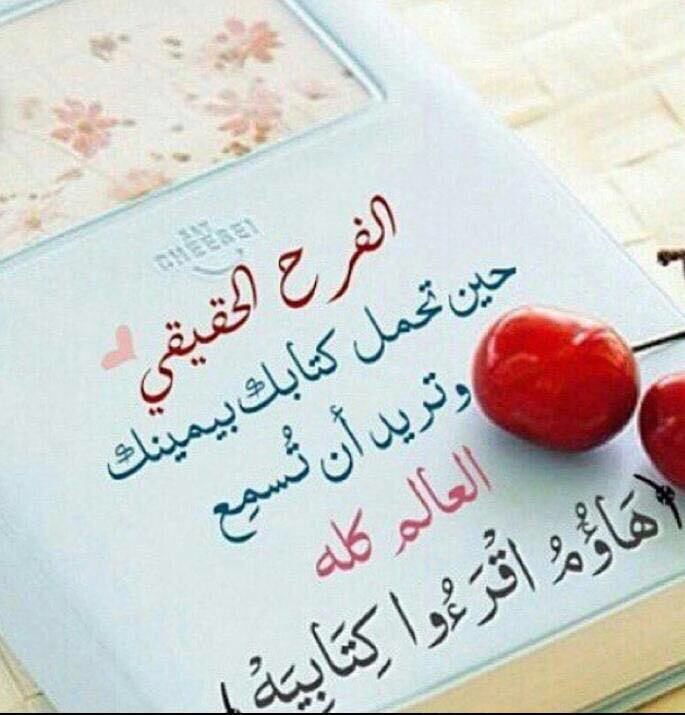 SAY
CHEERE!
الفرح الحقيقي
حين تحمل كتابك بيمينك
وتريد أن تُسمِع
العالم كله
﴿هَاؤُمُ اقْرَءُوا كِتَابِيَهْ﴾